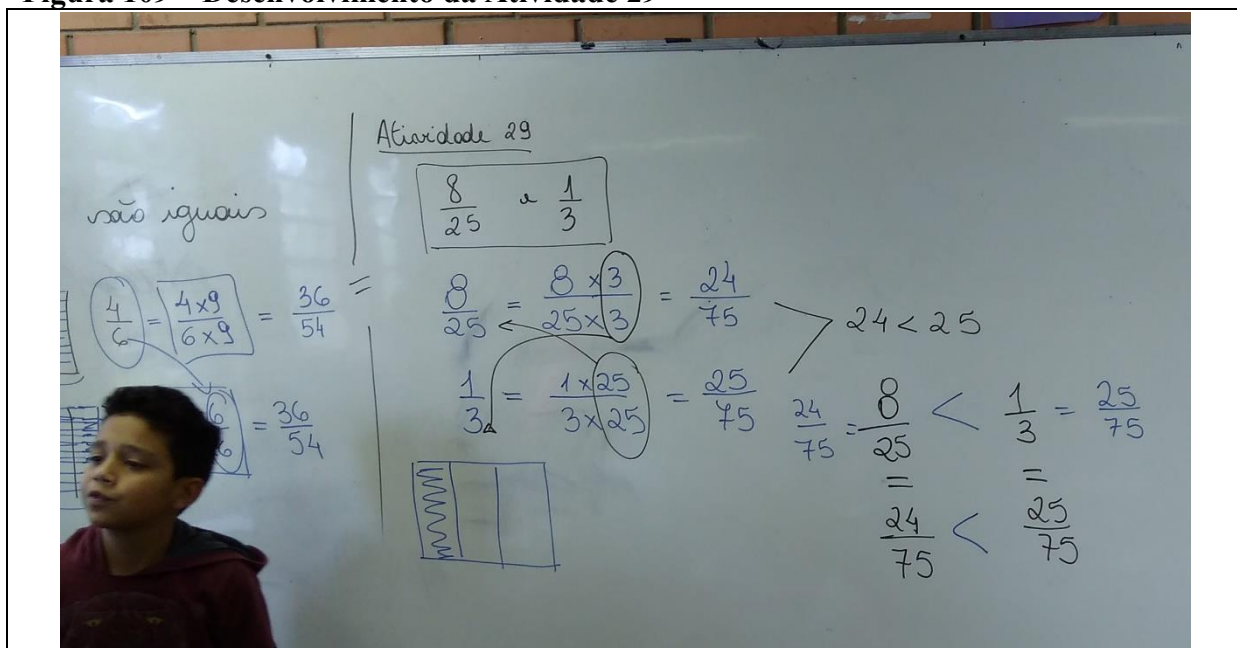 Figura 109 – Desenvolvimento da Atividade 29
são iguais
4/6 = 4x9/6x9 = 36/54 =
= 36/54
Atividade 29
8/25 e 1/3
8/25 = 8x3/25x3 = 24/75
24 < 25
1/3 = 1x25/3x25 = 25/75
24/75 = 8/25 < 1/3 = 25/75
= =
24/75 < 25/75